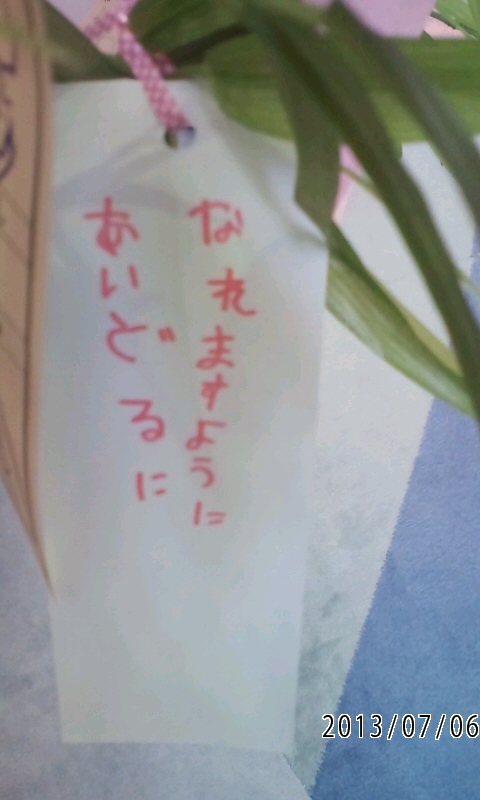 なれますように
あいどるに
2013/07/06